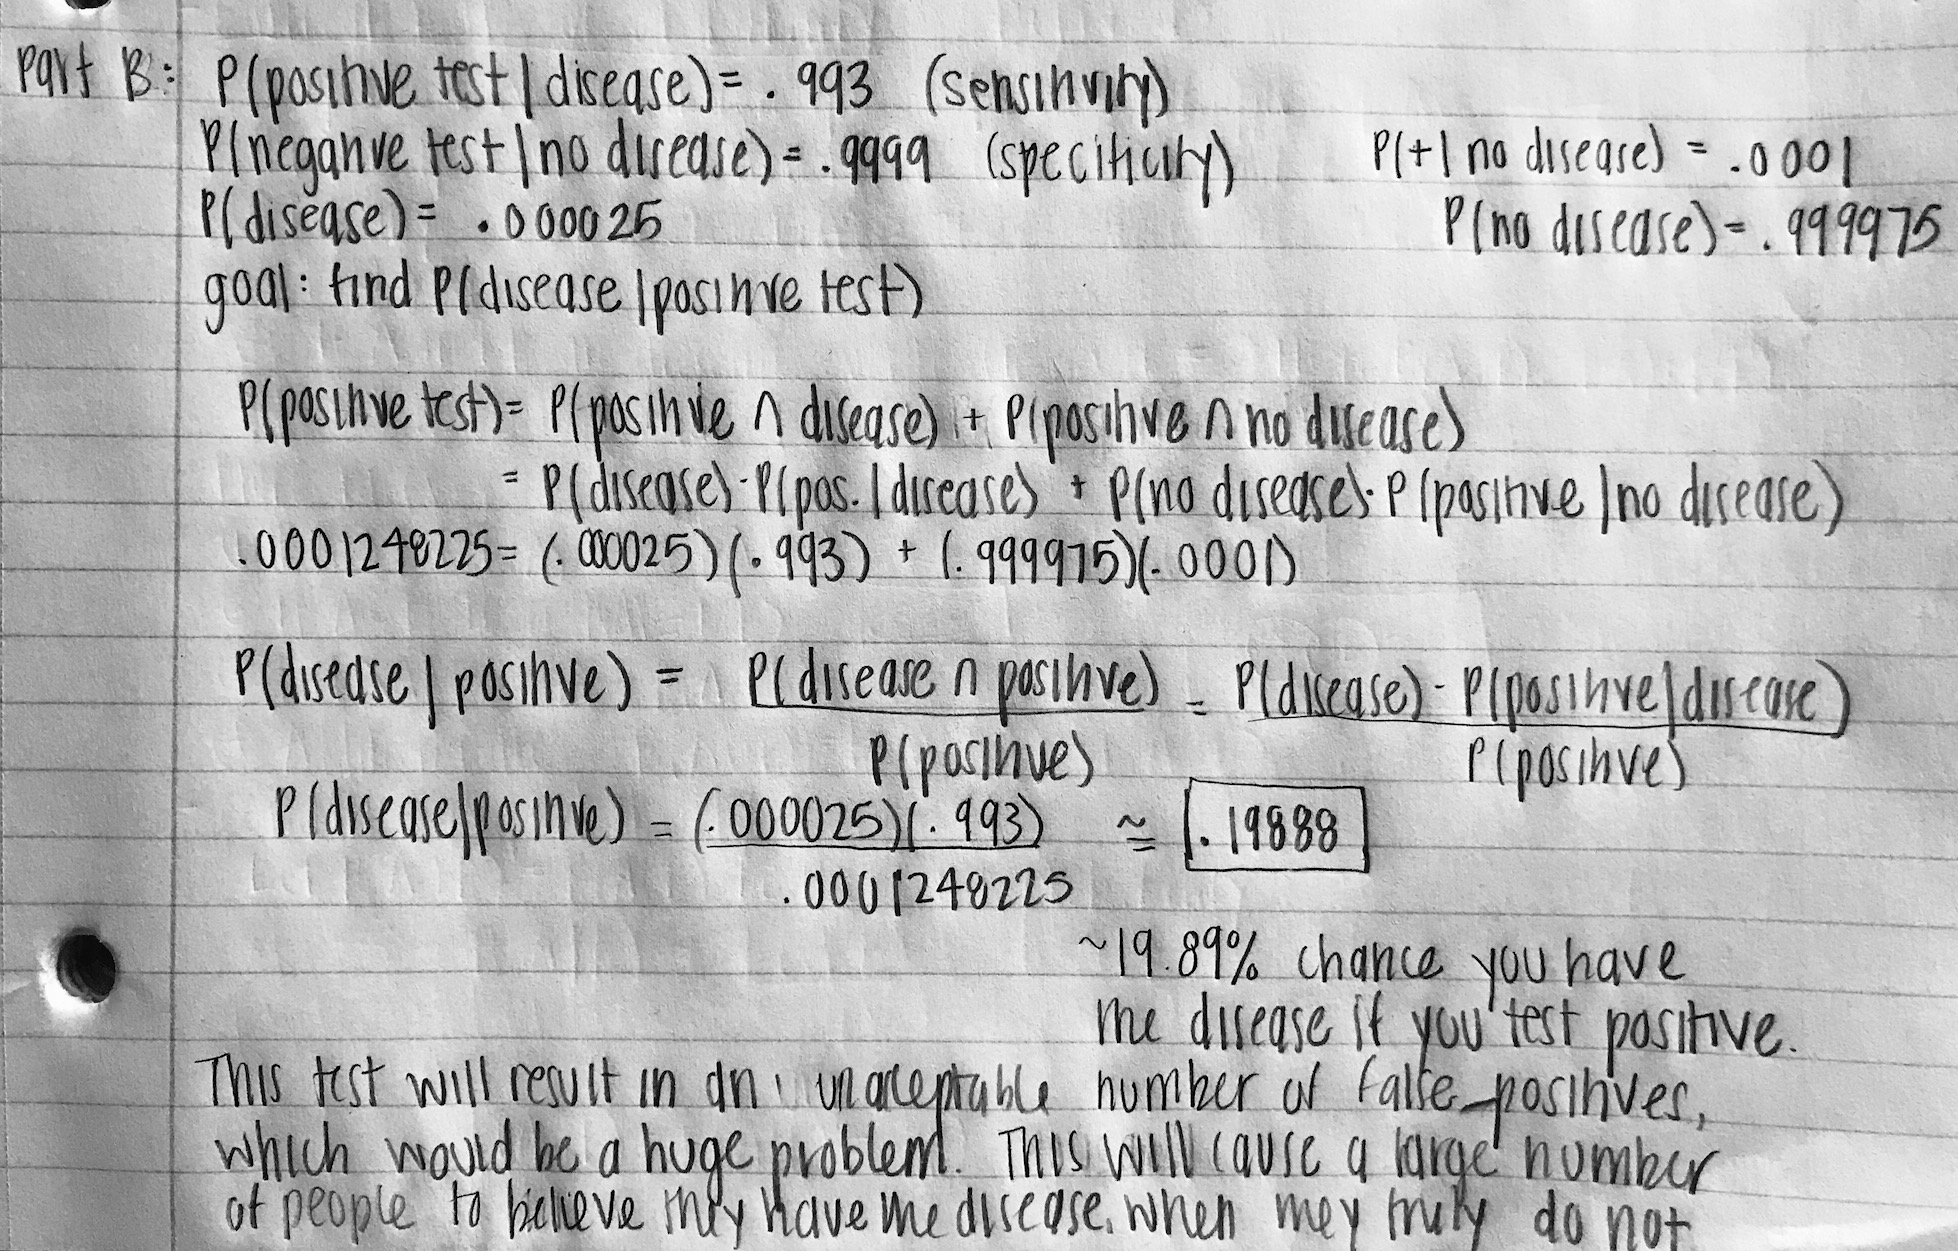 Part B: P(positive test | disease) = .993 (sensitivity)
P(negative test | no disease) = .9999 (specificity) P(+ | no disease) = .0001
P(disease) = .000025 P(no disease) = .999975
goal: find P(disease | positive test)
P(positive test) = P(positive ∩ disease) + P(positive ∩ no disease)
= P(disease) · P(pos. | disease) + P(no disease) · P(positive | no disease)
.0001248225 = (.000025)(.993) + (.999975)(.0001)
P(disease | positive) = P(disease ∩ positive) = P(disease) · P(positive | disease)
P(positive) P(positive)
P(disease | positive) = (.000025)(.993) ≅ .19888
.0001248225
~19.89% chance you have
the disease if you test positive.
This test will result in an unacceptable number of false positives,
which would be a huge problem. This will cause a large number
of people to believe they have the disease, when they truly do not